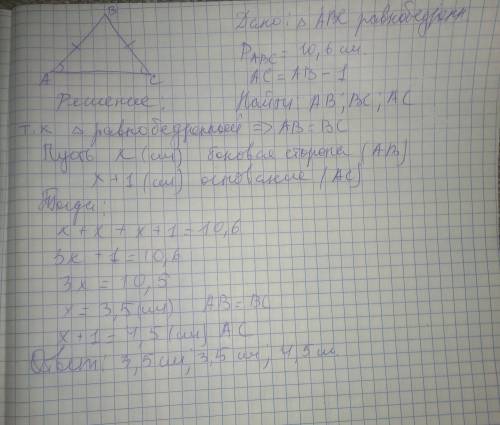 B
A
C
Дано: △ ABC равнобедрен
P ABC = 10,6 см.
AC = AB - 1
Найти: AB; BC; AC
Решение.
т.к △ равнобедренный => AB = BC
Пусть x (см) боковая сторона (AB)
x + 1 (см) основание (AC)
Тогда:
x + x + x + 1 = 10,6
3x + 1 = 10,6
3x = 10,5
x = 3,5 (см) AB = BC
x + 1 = 4,5 (см) AC
Ответ: 3,5 см; 3,5 см; 4,5 см